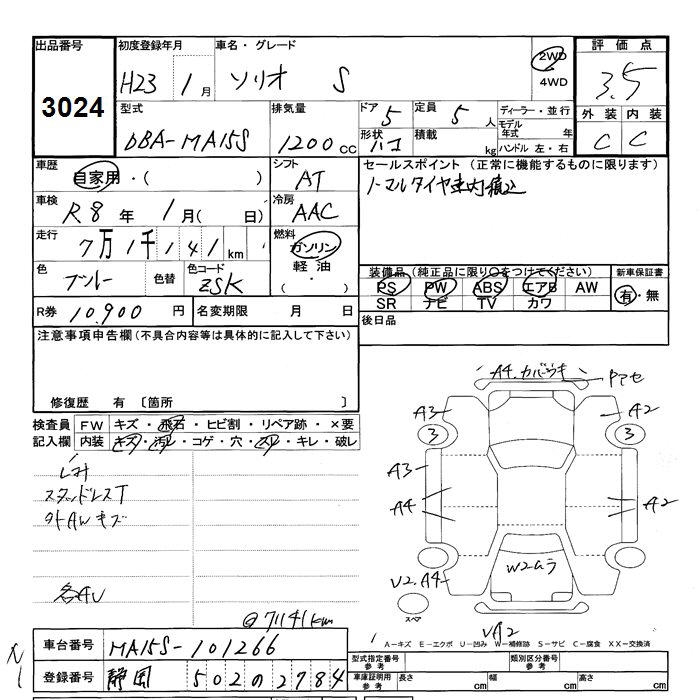 出品番号 初度登録年月 車名・グレード 2WD 評価点
3024 H23 1月 ソリオ S 4WD 3.5
型式 排気量 ドア 5 定員 5人 ディーラー・並行 外装 内装
DBA-MA15S 1200cc 形状 ハコ 積載 kg モデル年式 年 C C
ハンドル 左・右
車歴 自家用・( ) シフト AT セールスポイント (正常に機能するものに限ります)
車検 R8年1月( 日) 冷房 AAC ノーマルタイヤ車内積込
走行 7万1千141km 燃料 ガソリン
軽油
( ・ )
色 ブルー 色替 色コード ZSK 装備品 (純正品に限り○をつけてください) 新車保証書
PS PW ABS エアB AW 有・無
SR ナビ TV カワ
R券 10,900円 名変期限 月 日 後日品
注意事項申告欄(不具合内容等は具体的に記入して下さい)
修復歴 有 〔箇所 〕
A4.カバーウキ
検査員 FW キズ・飛石・ヒビ割・リペア跡・×要
記入欄 内装 キズ・汚レ・コゲ・穴・スレ・キレ・破レ
A3 A2
3 3
A3
スタッドレスT A4 A2
外AWキズ
W2ムラ
U2.A4
各AU スペア
@71141km
A-キズ E-エクボ U-凹み W-補修跡 S-サビ C-腐食 XX-交換済
車台番号 MA15S-101266 型式指定番号 参考 類別区分番号 参考
登録番号 静岡 502の2784 車庫証明用 参考 長さ cm 幅 cm 高さ cm